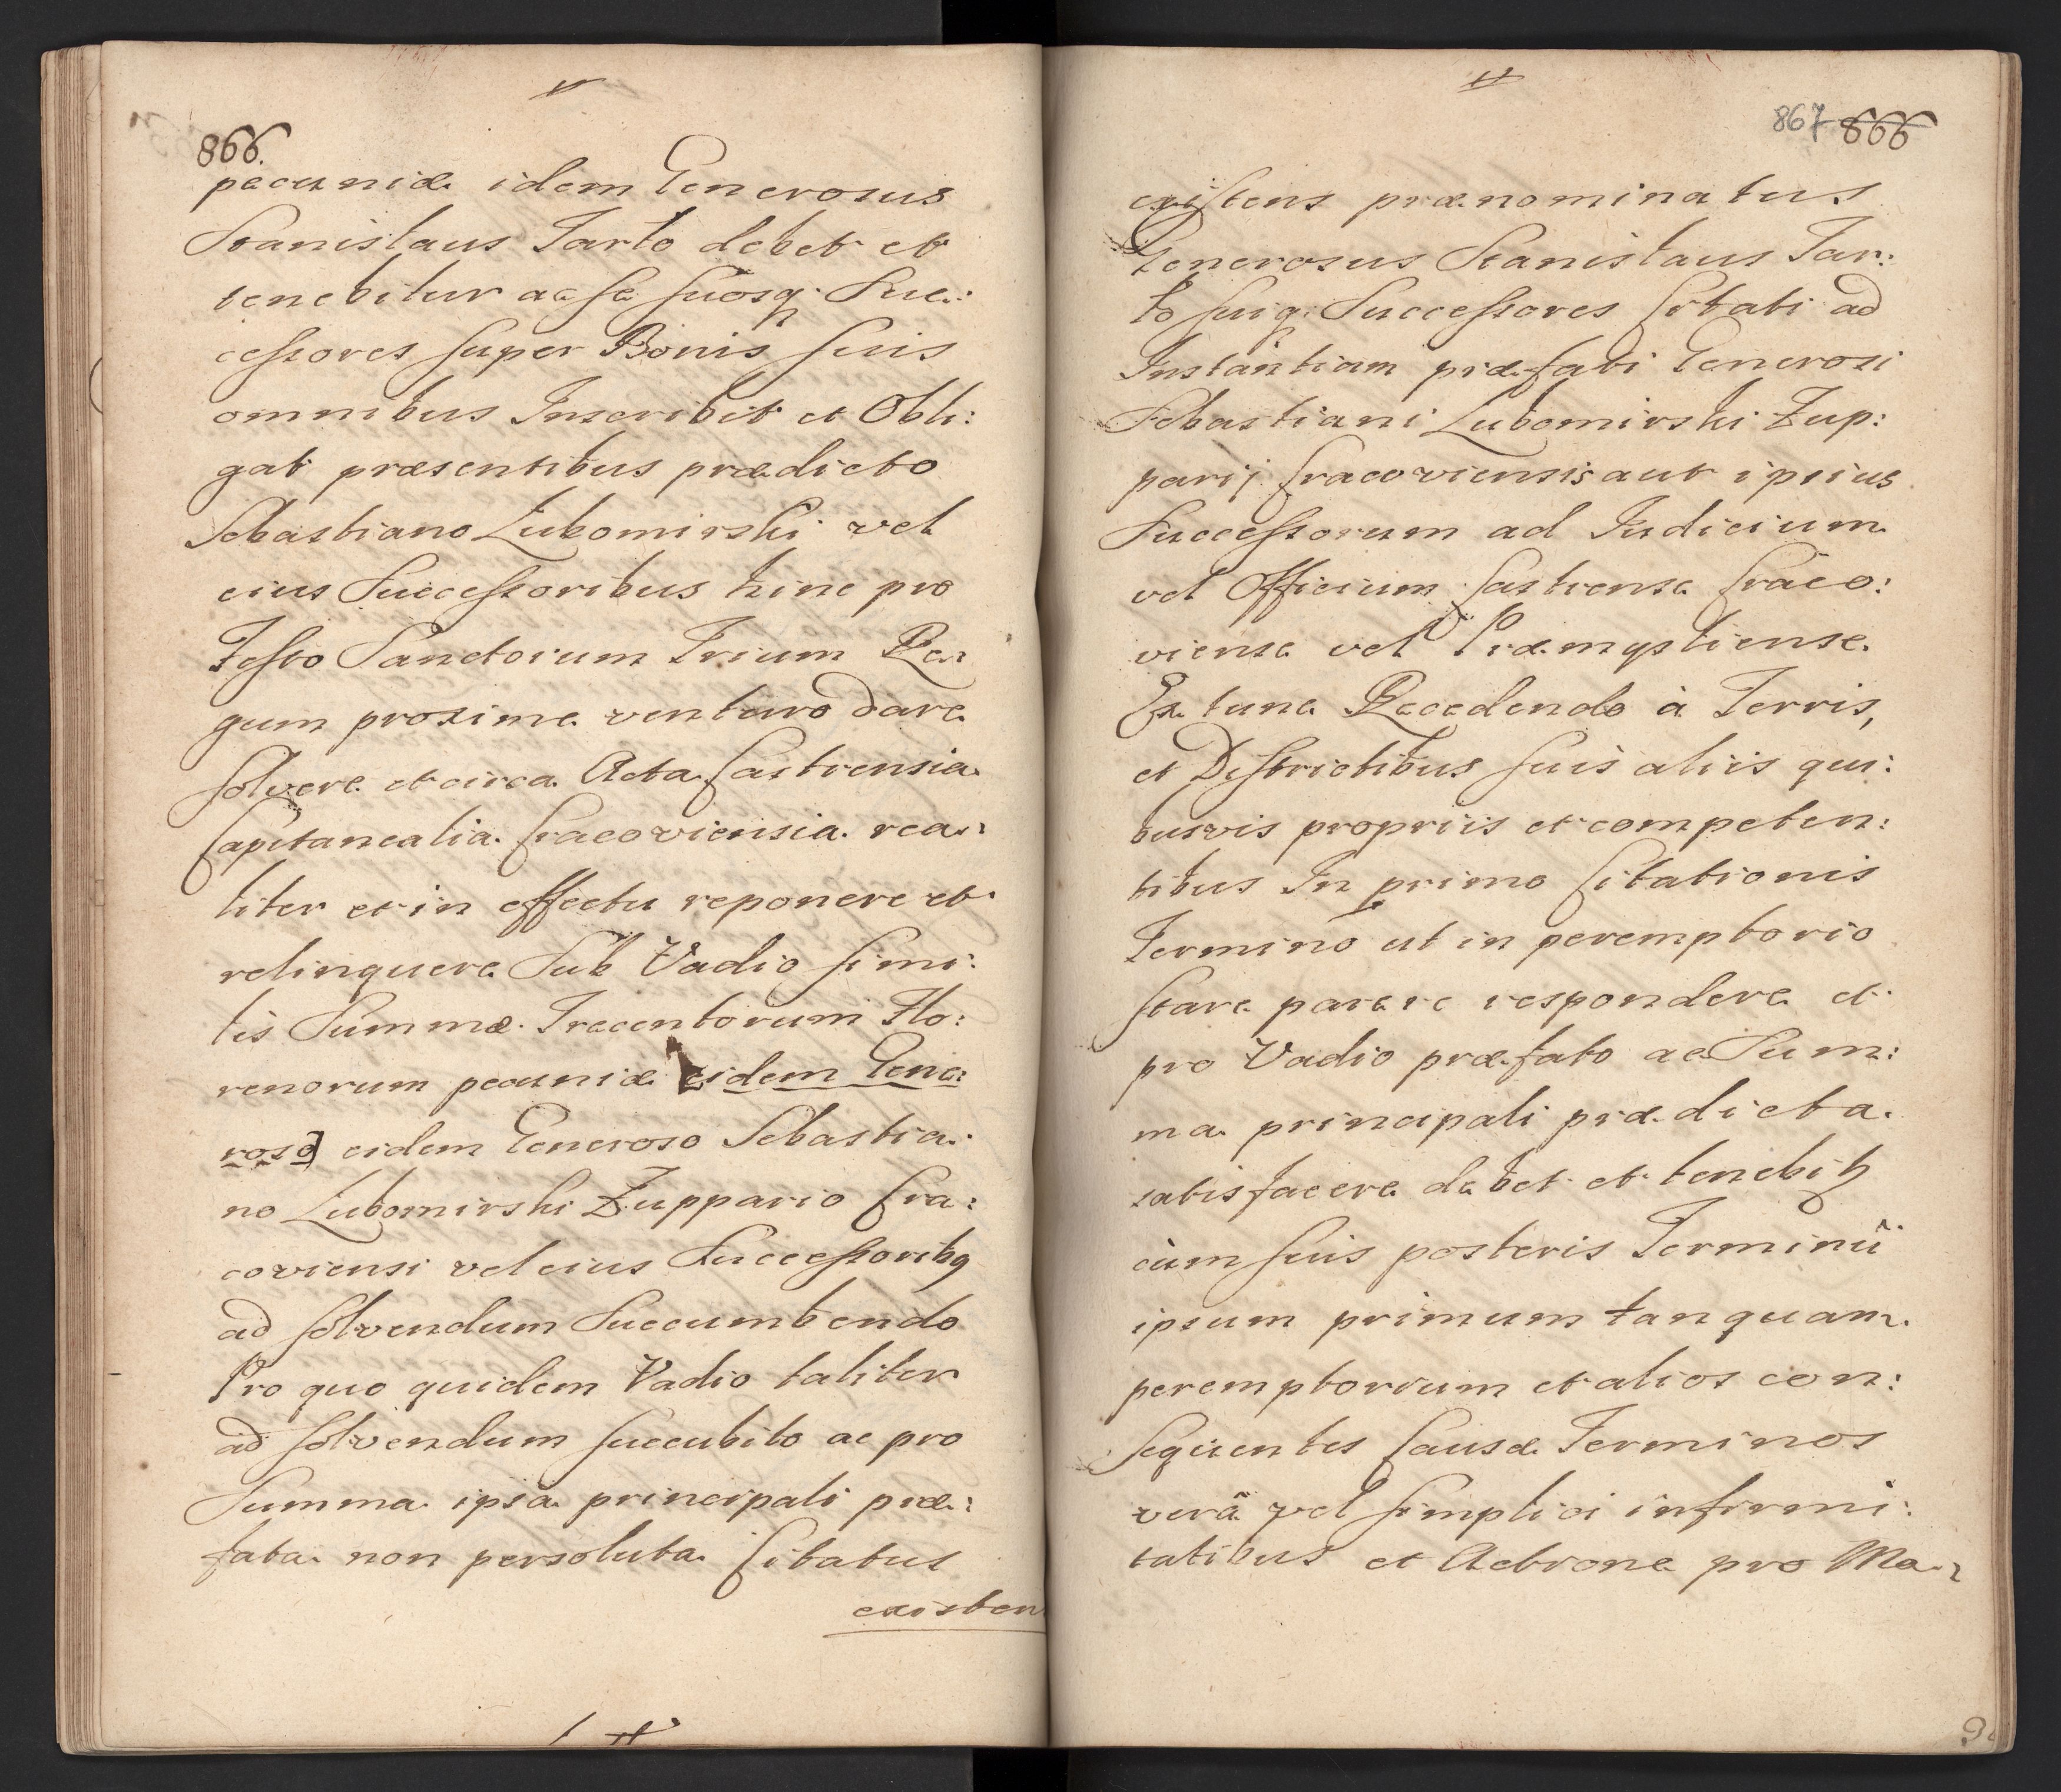 866.
pecuniæ idem Generosus
Stanislaus Tarło debet et
tenebitur ac se suosq; Suc:
cessores super Bonis suis
omnibus Inscribit et Obli:
gat præsentibus prædicto
Sebastiano Lubomirski vel
eius Successoribus hinc pro
Festo Sanctorum Trium Re:
gum proxime venturo dare
solvere et circa Acta Castrensia
Capitanealia Cracoviensia rea:
liter et in effectu reponere et
relinquere Sub Vadio simi:
lis Summæ Trecentorum Flo:
renorum pecuniæ eidem Gene:
roso] eidem Generoso Sebastia:
no Lubomirski Zuppario Cra:
coviensi vel eius Successoribq
ad solvendum Succumbendo
Pro quo quidem Vadio taliter
ad solvendum succubito ac pro
Summa ipsa principali præ:
fata non persoluta Citatus
existen
867 866
existens prænominatus
Generosus Stanislaus Tar:
ło suiq; Successores Citati ad
Instantiam præfati Generosi
Sebastiani Lubomirski Zup:
parij Cracoviensis aut ipsius
Successorum ad Iudicium
vel Officium Castrense Craco:
viense vel Præmysliense
Ex tunc Recedendo à Terris,
et Districtibus suis aliis qui:
busvis propriis et competen:
tibus In primo Citationis
Termino ut in peremptorio
stare parere respondere et
pro Vadio præfato ac Sum:
ma principali prædicta
satisfacere debet et tenebit~
cum suis posteris Terminũ
ipsum primum tanquam
peremptorium et alios con:
sequentes Causæ Terminos
verâ vel simplici infirmi:
tatibus et Actione pro Ma: